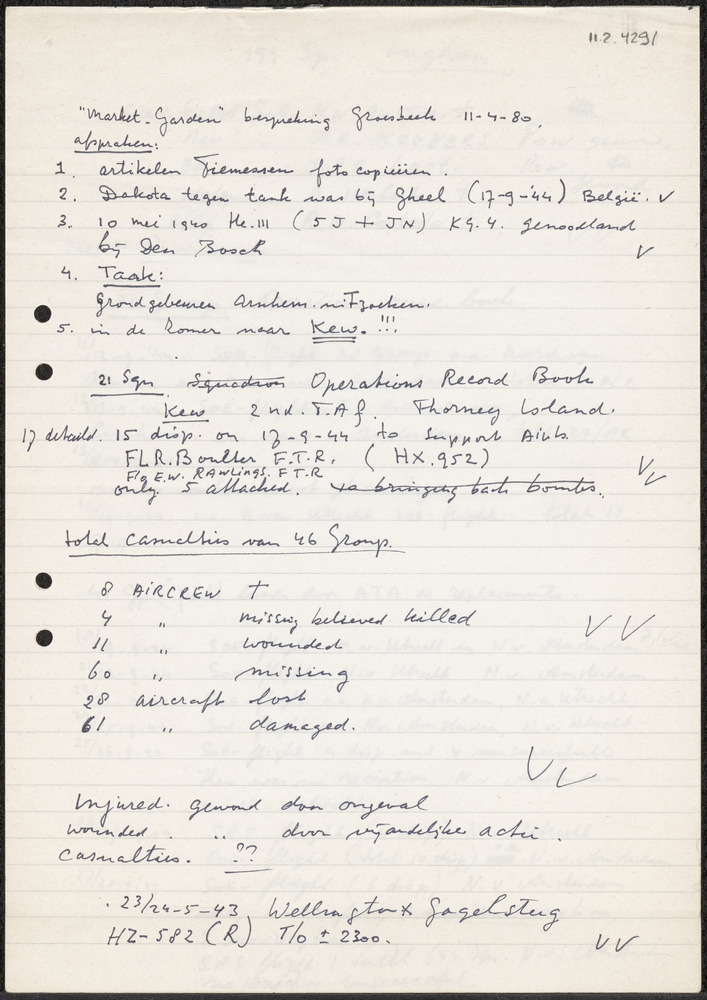 11.2.4291
"Market-Garden" bespreking Groesbeek 11-4-80,
afspraken:
1. artikelen Tiemessen fotocopieëren.
2. Dakota tegen tank was bij Gheel (17-9-'44) België. V
3. 10 mei 1940 He.III (5J + JN) KG.4. genoodland
bij Den Bosch V
4. Taak:
Grondgebeuren Arnhem uitzoeken.
5. in de zomer naar Kew. !!!
21 Sqn Squadron Operations Record Book
Kew 2nd. T.A.f. Thorney Island.
17 detaild. 15 disp. on 17-9-44 to support Airb.
FL R. Boulter F.T.R. (HX.952)
F/O E.W. RAWLINGS. F.T.R V V
only 5 attached. bringing back bombs.
total casualties van 46 Group.
8 AIRCREW †
4 " missing believed killed V V
11 " wounded
60 " missing
28 aircraft lost
61 " damaged.
V V
Injured. gewond door ongeval
wounded. " door vijandelijke actie.
casualties. ??
23/24-5-43 Wellington X Gagelsteeg
HZ-582 (R) T/O ± 2300. V V